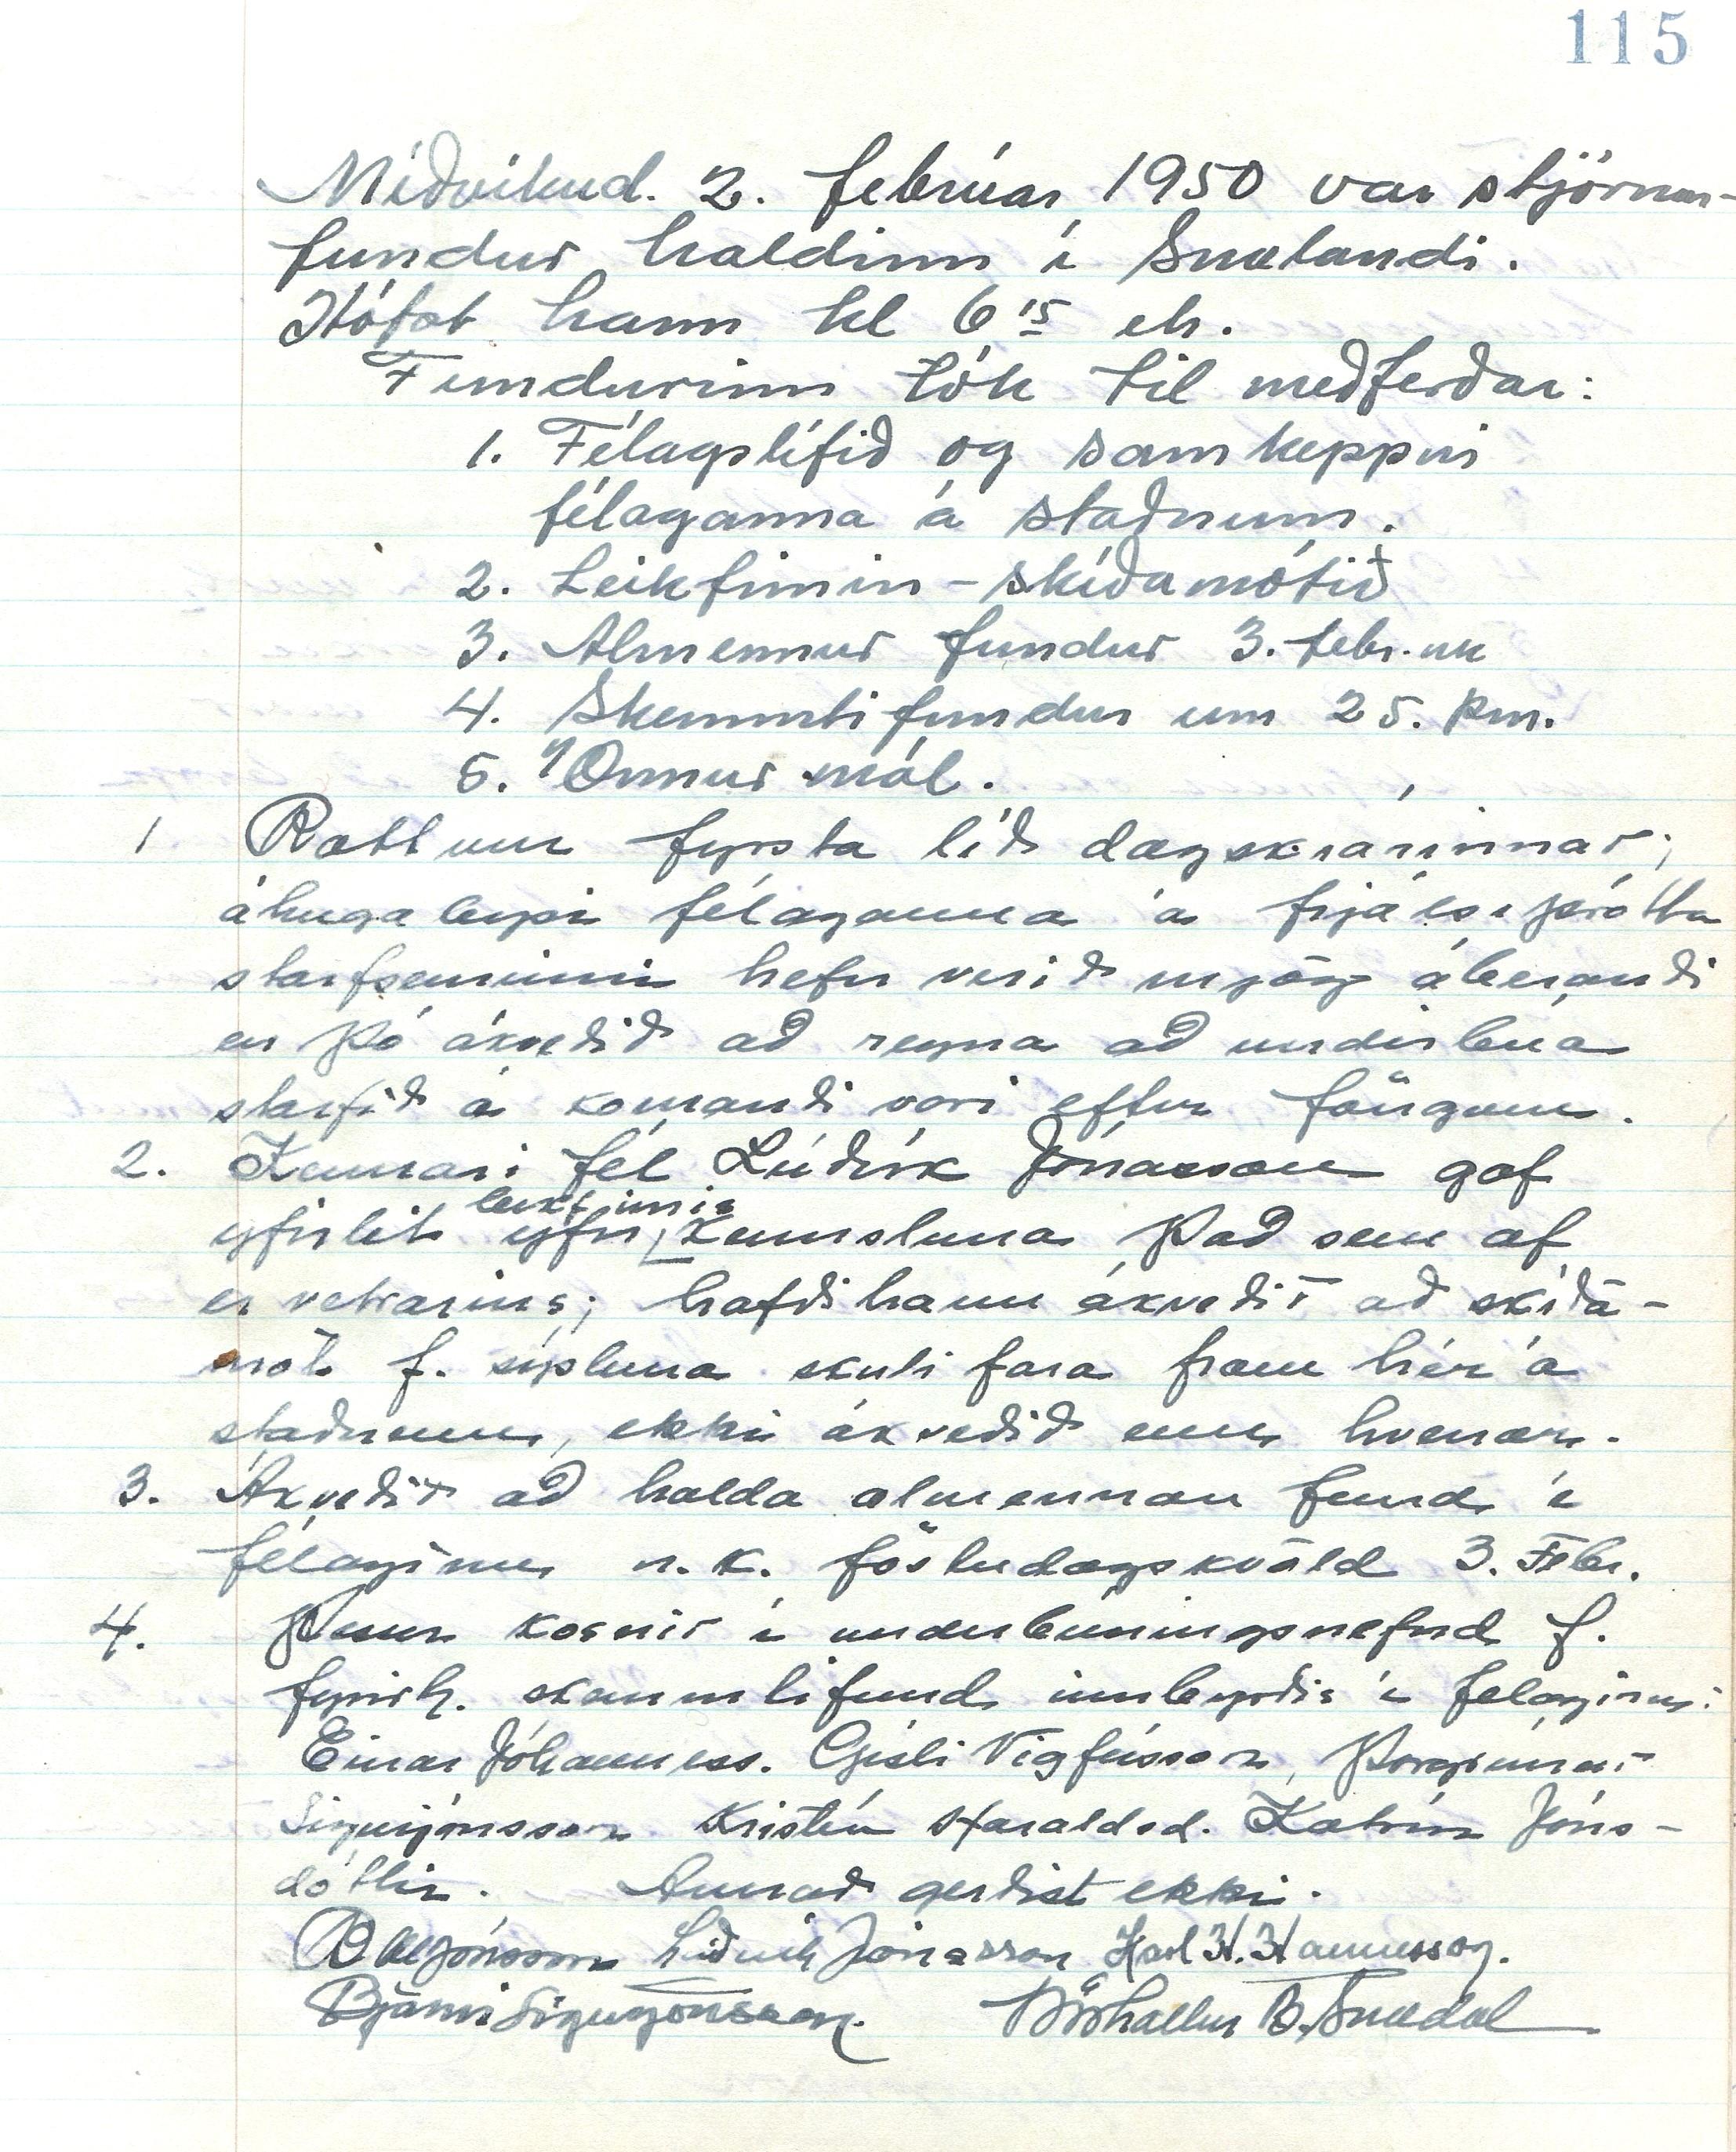 115
Miðvikud. 2. febrúar 1950 var stjórnar-
fundur haldinn í Snælandi.
Hófst hann kl 6 15 eh.
Fundurinn tók til meðferðar:
1. Félagslífið og samkeppni
félaganna á staðnum.
2. Leikfimin - skíðamótið
3. Almennur fundur 3. febr. nk
4. Skemmtifundur um 25. þm.
5. Önnur mál.
1 Rætt um fyrsta lið dagskrárinnar;
áhugaleysi félaganna á frjálsíþrótta
starfseminni hefur verið mjög áberandi
en þó ákveðið að reyna að undirbúa
starfið á komandi vori eftir föngum.
2. Kennari fél Lúðvík Jónasson gaf
leikfimis
yfirlit yfir kennsluna það sem af
er vetrarins; hafði hann ákveðið að skíða-
mót f. sýsluna skuli fara fram hér á
staðnum, ekki ákveðið enn hvenær.
3. Ákveðið að halda almennan fund í
félaginu n.k. föstudagskvöld 3. Febr.
4. Þessir kosnir í undirbúningsnefnd f.
fyrirh. skemmtifund innbyrðis í félaginu:
Einar Jóhanness. Gísli Vigfússon, Þorgrímur
Sigurjónsson Kristín Haraldsd. Katrín Jóns-
dóttir. Annað gerðist ekki.
Lúðvík Jónasson Karl H. Hannesson.
Bjarni Sigurjónsson. Þórhallur B. Snædal